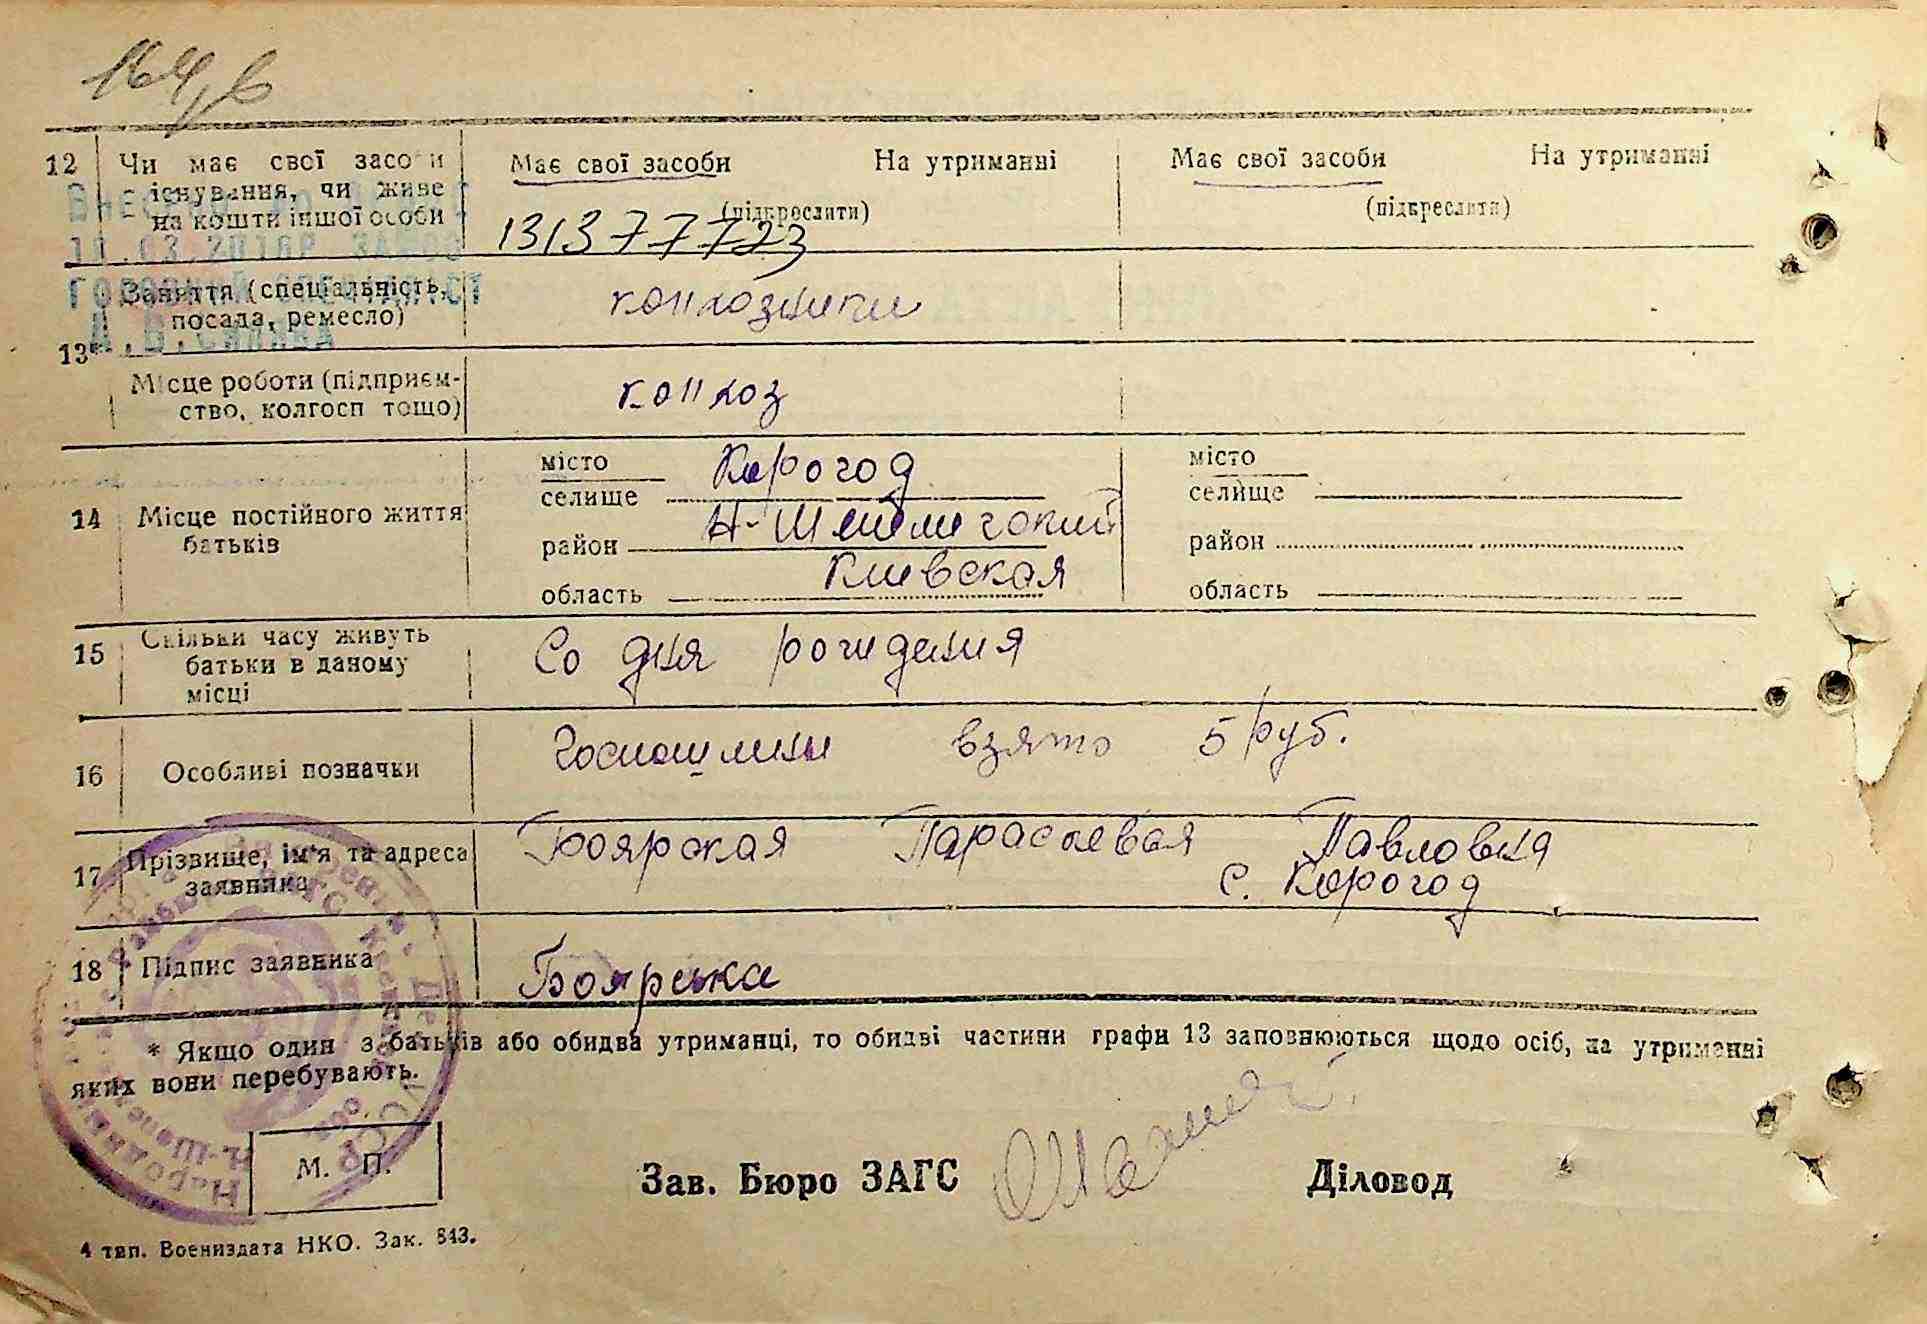 164,б
12 Чи має свої засоби існування, чи живе на кошти іншої особи
Має свої засоби На утриманні
(підкреслити)
131377723
Має свої засоби На утриманні
(підкреслити)
11.03.2016Р
13*
Заняття (спеціальність, посада, ремесло)
колхозники
Місце роботи (підприєм-
ство, колгосп тощо)
колхоз
14 Місце постійного життя батьків
місто
селище Корогод
район Н-Шепеличский
область Киевская
місто
селище
район
область
15 Скільки часу живуть батьки в даному місці
Со дня рождения
16 Особливі позначки
Госпошлины взято 5 руб.
17 Прізвище, ім'я та адреса заявника
Боярская Парасковья Павловна
с. Корогод
18 Підпис заявника
Боярська
* Якщо один з батьків або обидва утриманці, то обидві частини графи 13 заповнюються щодо осіб, на утриманні
яких вони перебувають.
М. П.
Зав. Бюро ЗАГС
Діловод
4 тип. Воениздата НКО. Зак. 843.